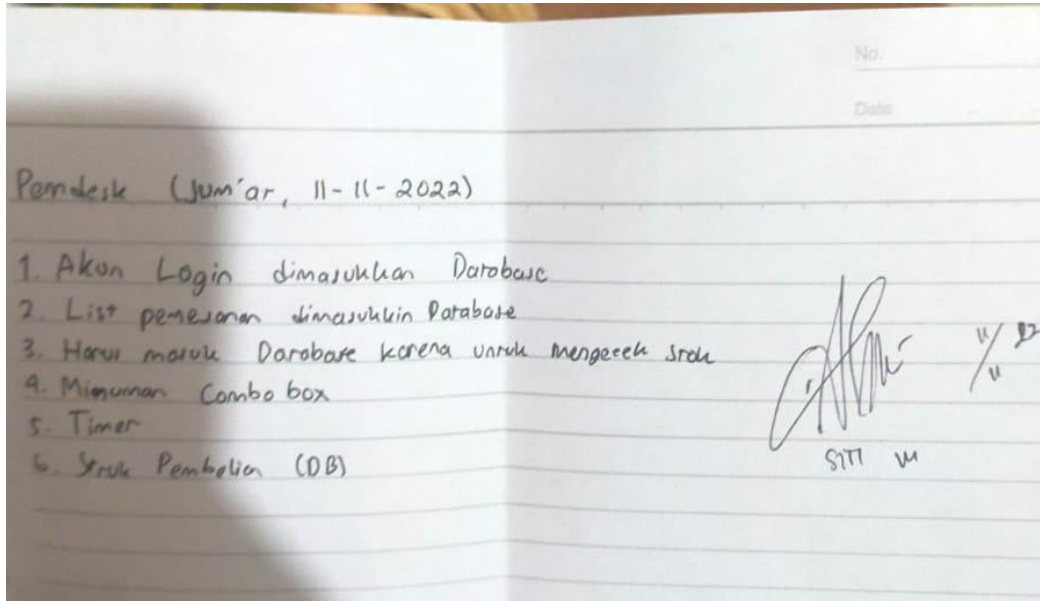 No.
Date
Pemdesk (Jum'at, 11-11-2022)
1. Akun Login dimasukkan Database
2. List pemesanan dimasukkin Database
3. Harus masuk Database karena untuk mengecek stok
4. Minuman Combo box
5. Timer
6. Struk Pembelian (DB)
11/11 22
SITI M